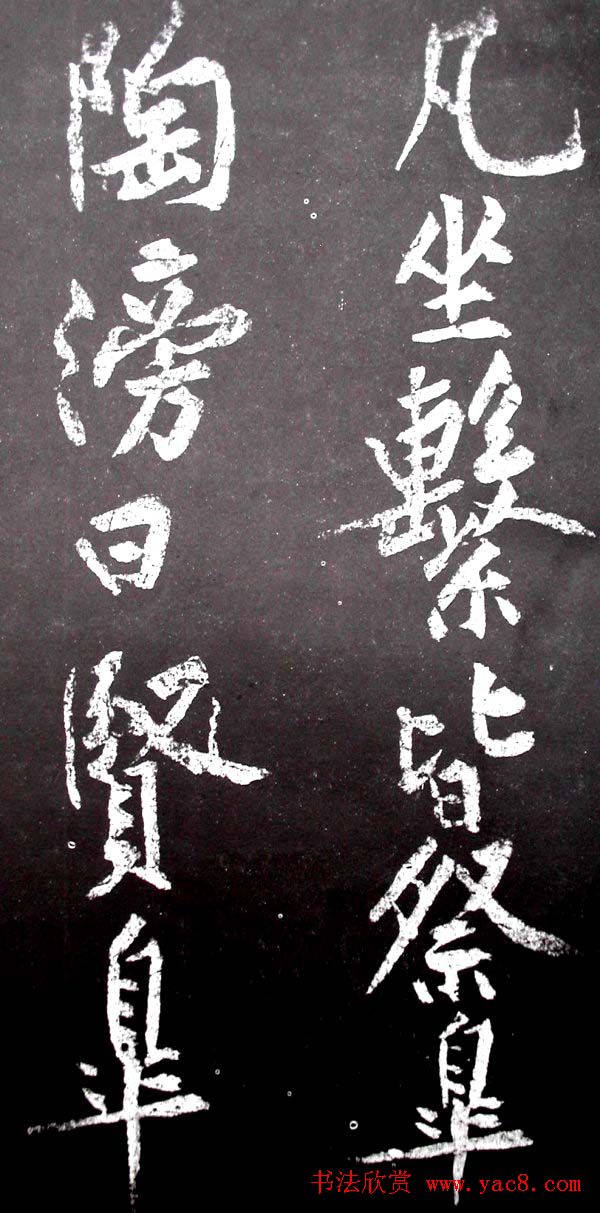 凡坐繫皆祭皐
陶滂曰賢皐
书法欣赏 www.yac8.com